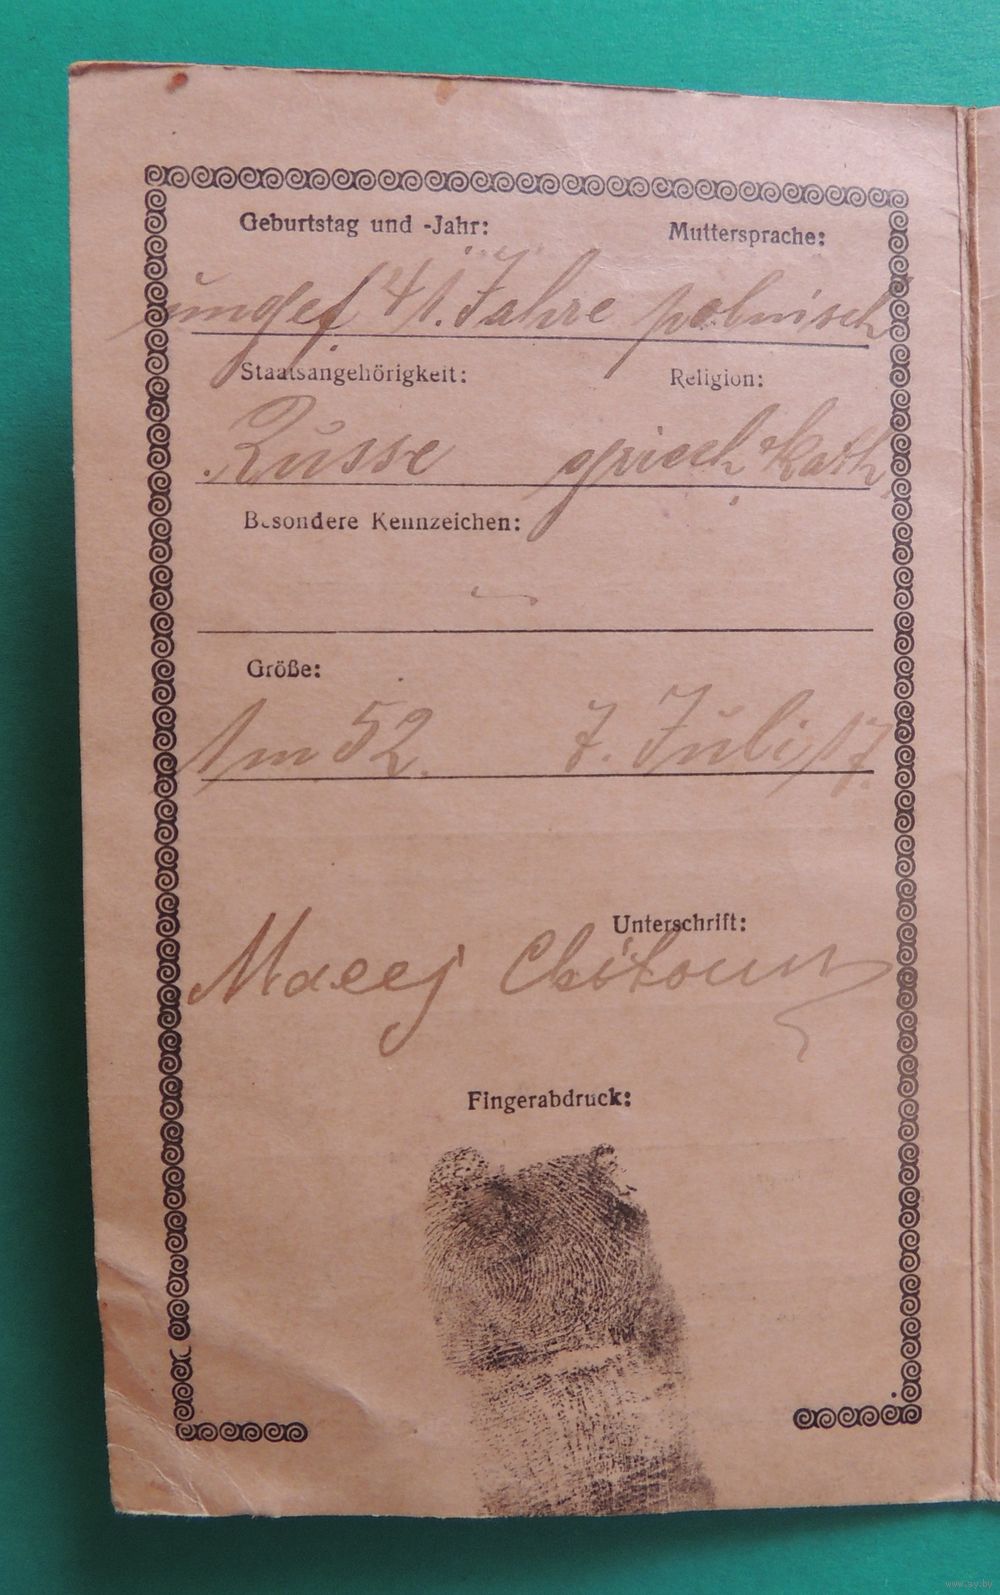 Geburtstag und -Jahr: Muttersprache:
ungef 41. Jahre polnisch
Staatsangehörigkeit: Religion:
Russe griech kath
Besondere Kennzeichen:
Größe:
1 m 52. 7. Juli 17.
Unterschrift:
Maeej
Fingerabdruck:
www.ay.by